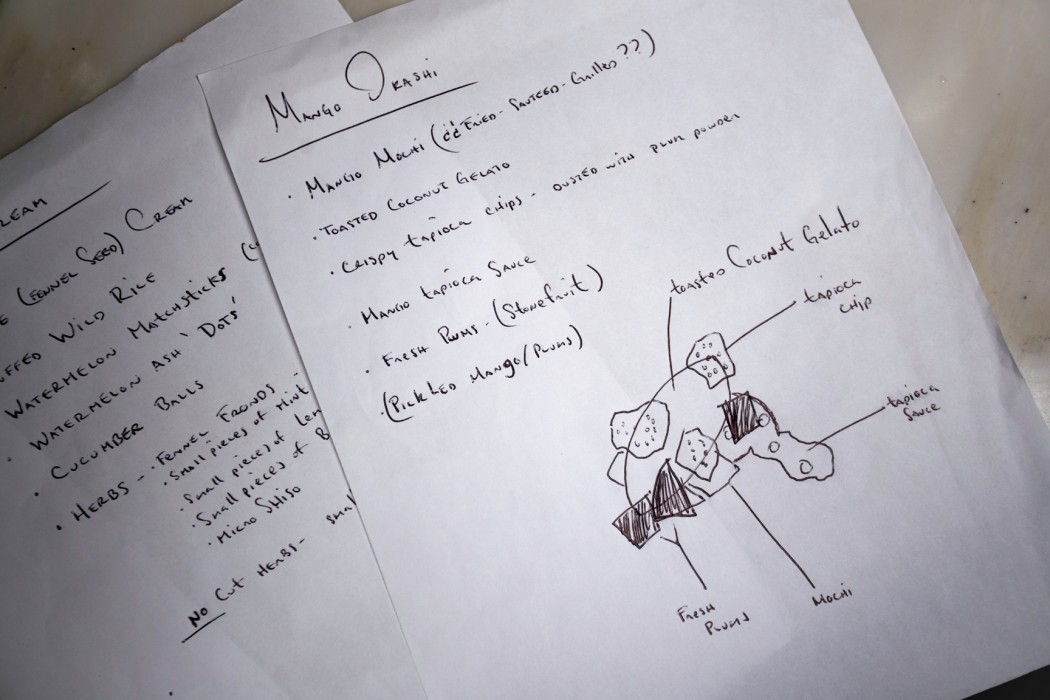 REAM
(FENNEL SEED) CREAM
UFFED WILD RICE
WATERMELON MATCHSTICKS
WATERMELON ASH 'DOTS'
• CUCUMBER BALLS
• HERBS - • FENNEL FRONDS
• SMALL PIECES OF MINT
• SMALL PIECES OF LEM
• SMALL PIECES OF B
• MICRO SHISO
NO CUT HERBS - SMAL
MANGO OKASHI
• MANGO MOCHI (FRIED - SAUTEED - GRILLED??)
• TOASTED COCONUT GELATO
• CRISPY TAPIOCA CHIPS - DUSTED WITH PLUM POWDER
• MANGO TAPIOCA SAUCE
• FRESH PLUMS - (STONEFRUIT)
• (PICKLED MANGO/PLUMS)
TOASTED COCONUT GELATO
TAPIOCA
CHIP
TAPIOCA
SAUCE
MOCHI
FRESH
PLUMS